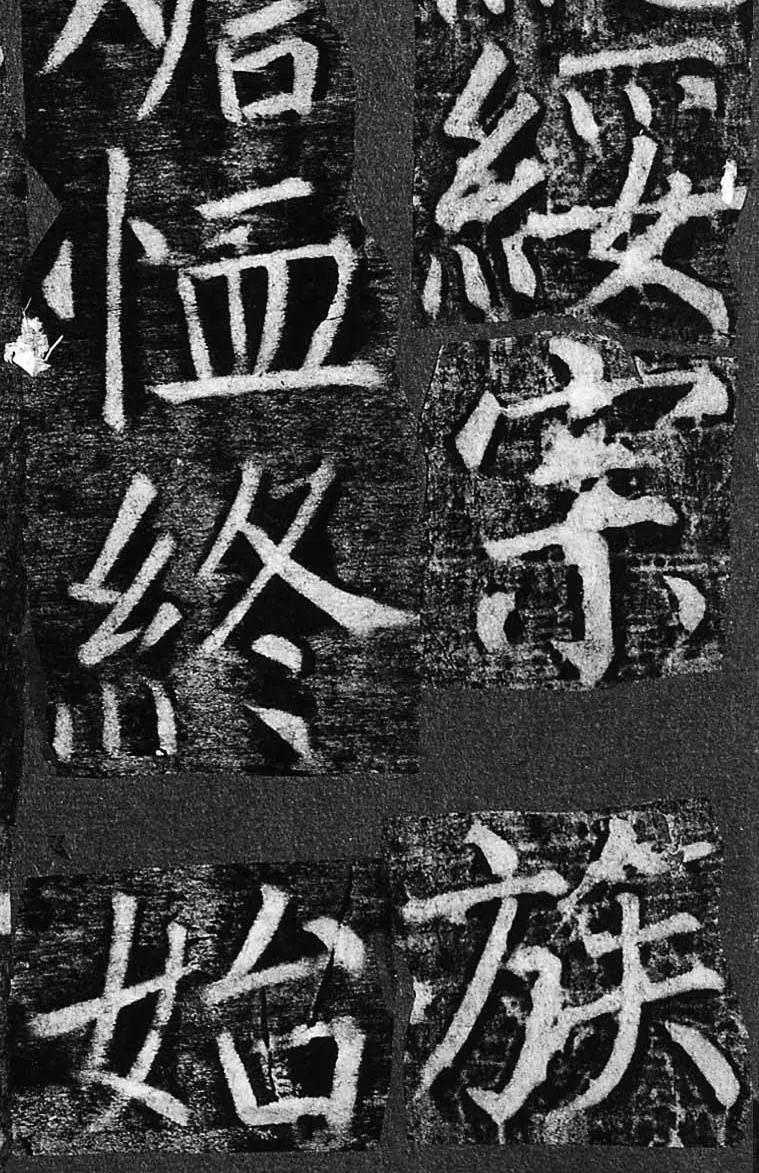 綏宗族
恤終始